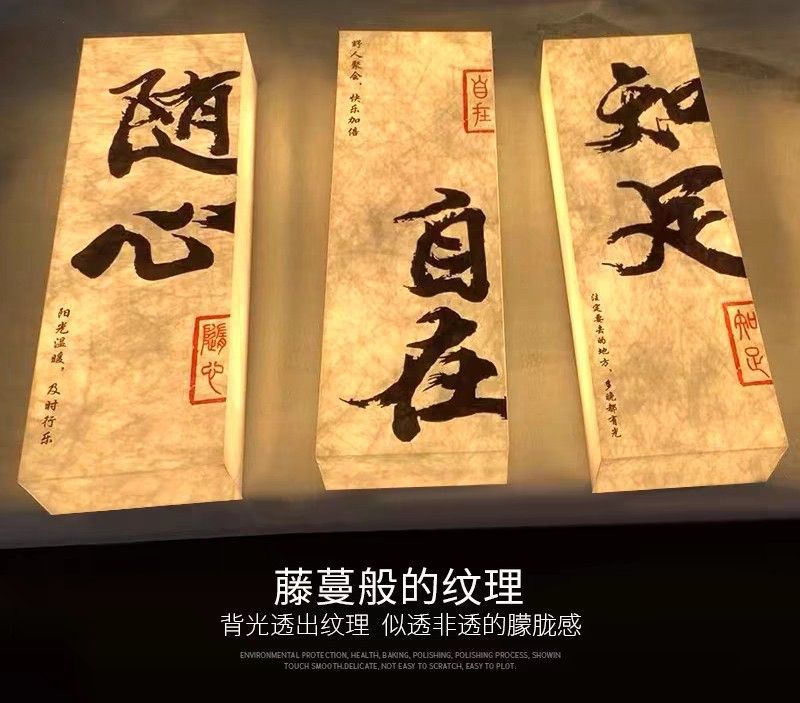 随心
阳光温暖，及时行乐
隨心
野人聚会，快乐加倍
自在
自在
知足
注定要去的地方，多晚都有光
知足
藤蔓般的纹理
背光透出纹理 似透非透的朦胧感
ENVIRONMENTAL PROTECTION, HEALTH, BAKING, POLISHING, POLISHING PROCESS, SHOWIN
TOUCH SMOOTH.DELICATE, NOT EASY TO SCRATCH, EASY TO PLOT.